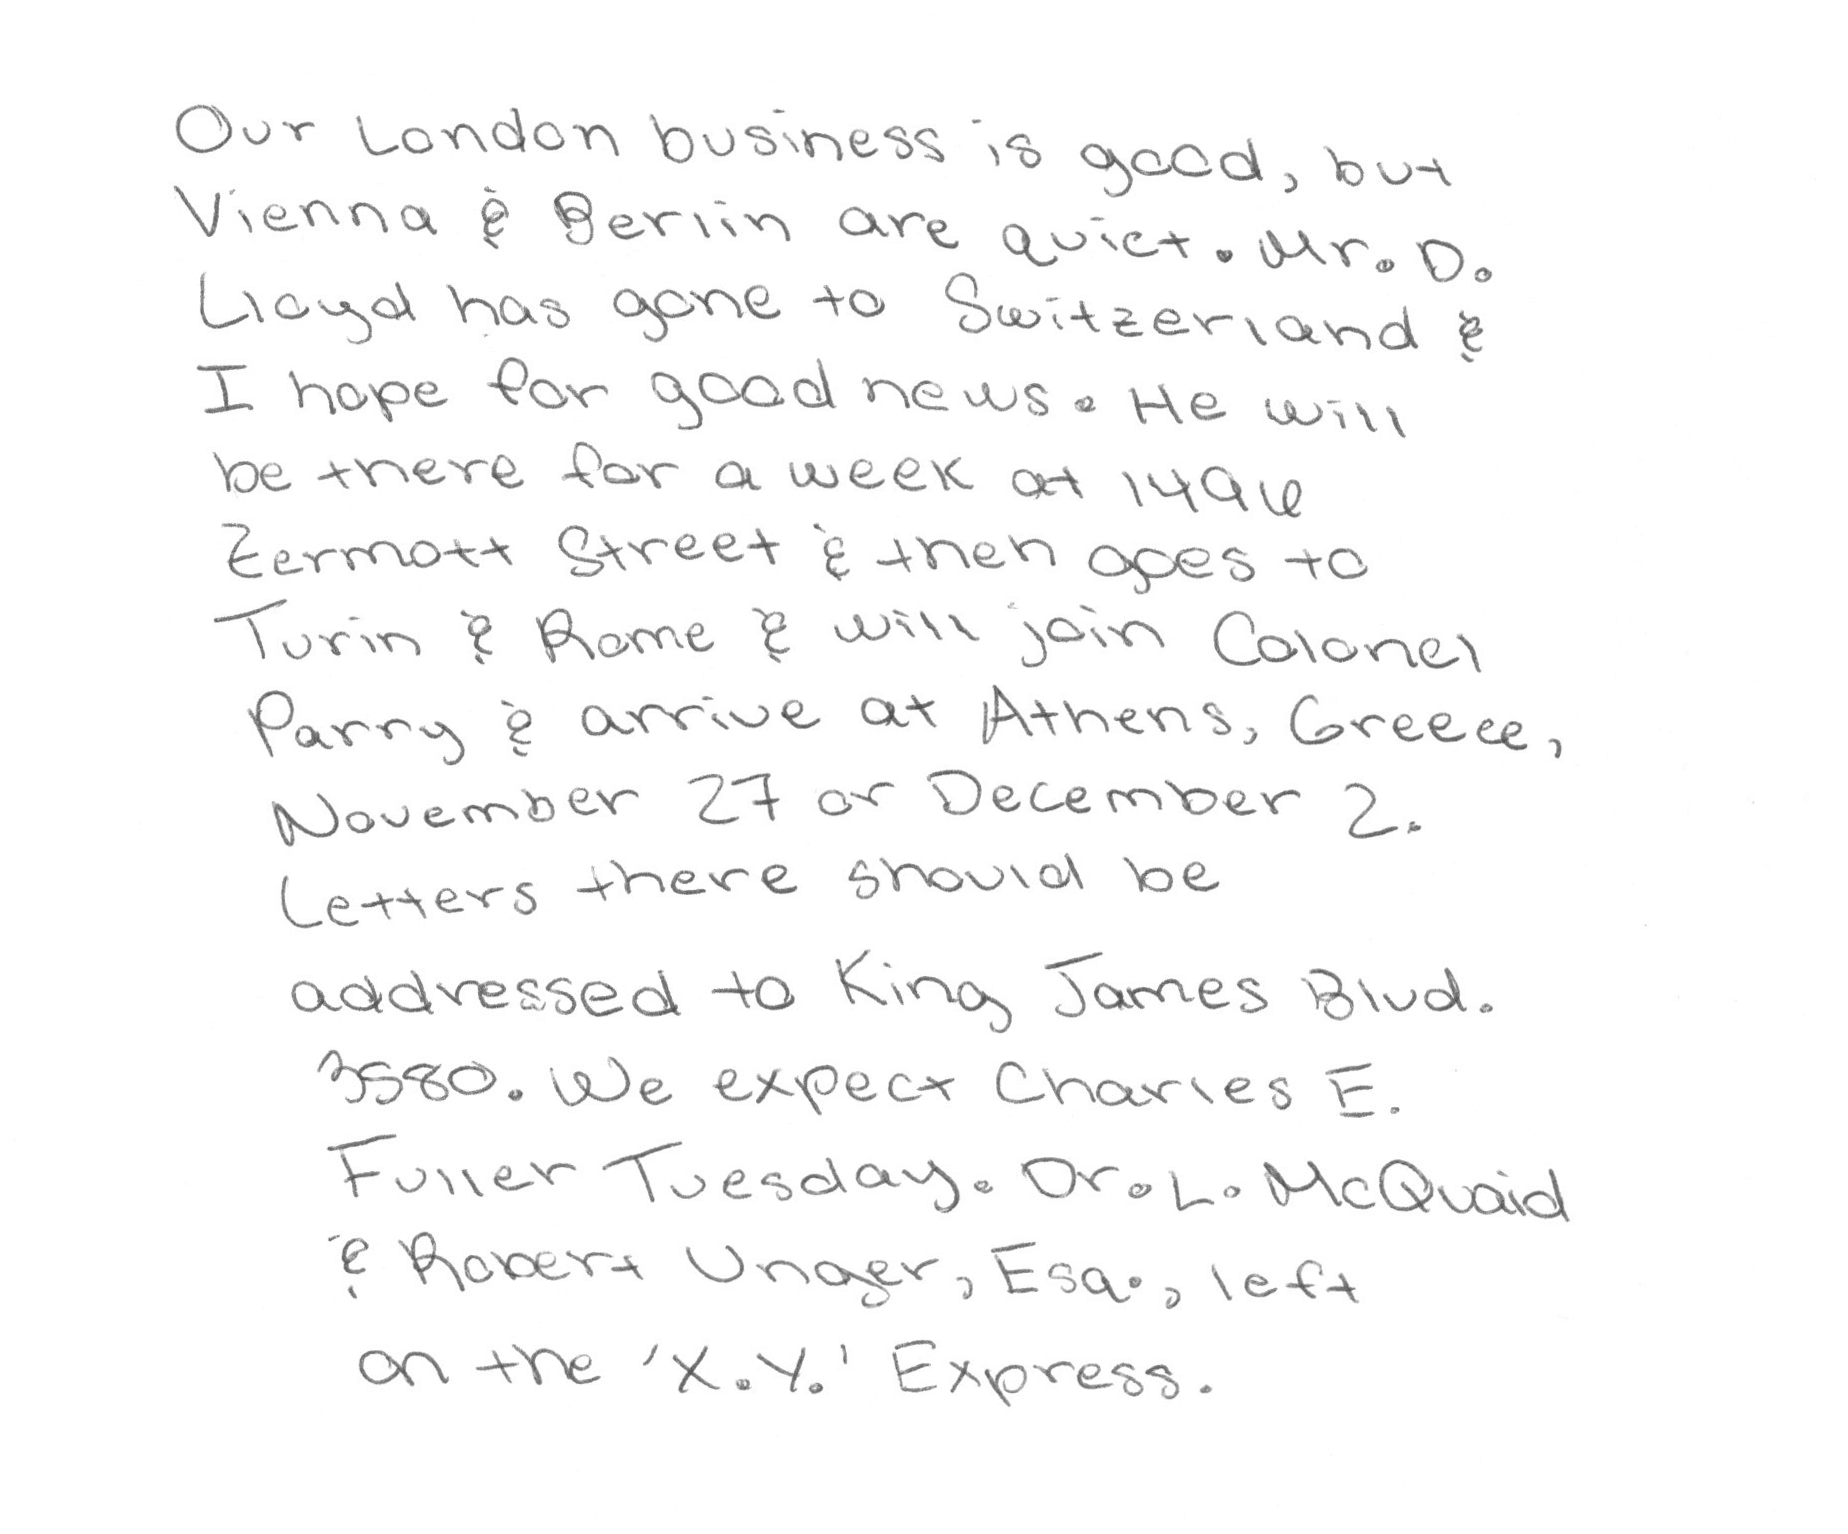 Our London business is good, but
Vienna & Berlin are quiet. Mr. D.
Lloyd has gone to Switzerland &
I hope for good news. He will
be there for a week at 1496
Zermott Street & then goes to
Turin & Rome & will join Colonel
Parry & arrive at Athens, Greece,
November 27 or December 2.
Letters there should be
addressed to King James Blvd.
3580. We expect Charles E.
Fuller Tuesday. Dr. L. McQuaid
& Robert Unger, Esq., left
on the 'X.Y.' Express.